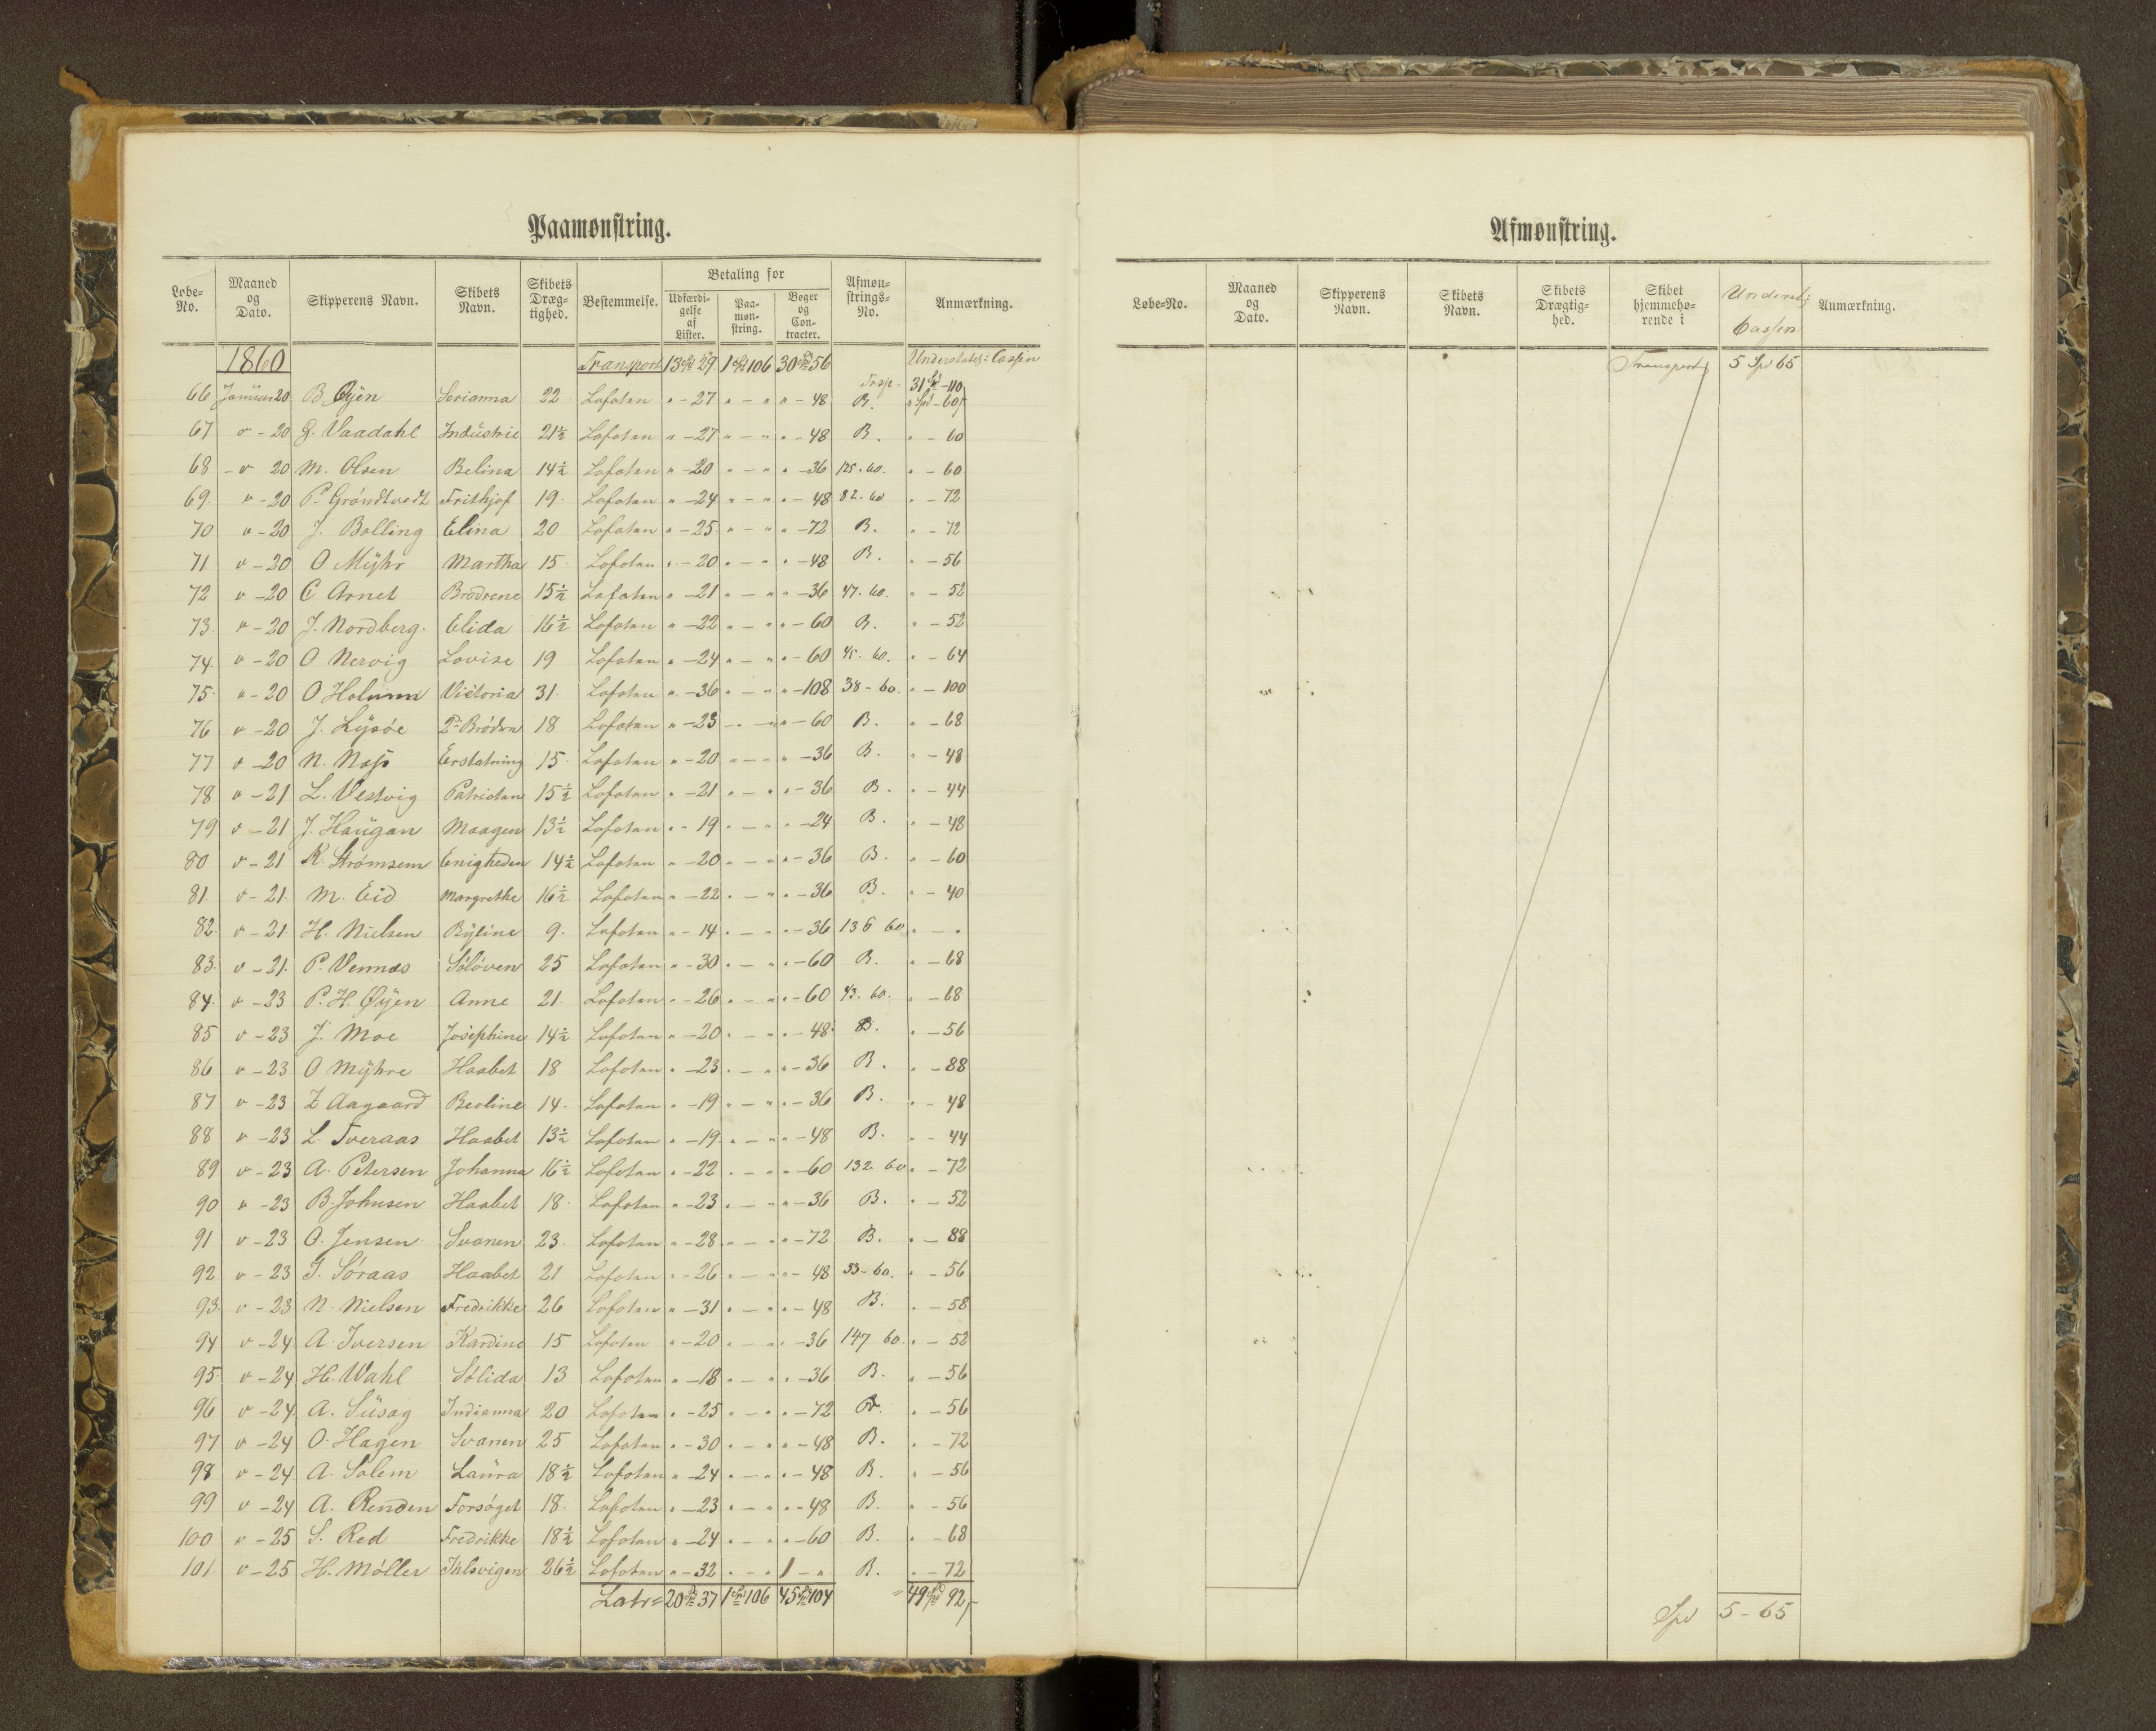 Paamønstring.
Løbe-No. Maaned og Dato. Skipperens Navn. Skibets Navn. Skibets Dræg-tighed. Bestemmelse. Betaling for Udfærdi-gelse af Lister. Paa-møn-string. Bøger og Con-tracter. Afmøn-strings-No. Anmærkning.
1860 Transport 13 Spd 29 1 Spd 106 30 Spd 56 Understøttels: Cassen
Trsp = 31 Spd - 110
66 Januar 20 B Øÿen Serianna 22 Lofoten " - 27 " - " " - 48 B. " Spd - 60
67 v - 20 G. Vaadahl Indüstrie 21½ Lofoten " - 27 " - " " - 48 B. " - 60
68 - v 20 M. Olsen Belina 14½ Lofoten " - 20 " - " " - 36 125. 60. " - 60
69. v - 20 P. Gröndtvedt Frithjof 19. Lofoten " - 24 " - " " - 48 82. 60 " - 72
70 v - 20 J. Bolling Elina 20 Lofoten " - 25 " - " " - 72 B. " - 72
71 v - 20 O Mÿhr Martha 15 Lofoten " - 20 " - " " - 48 B. " - 56
72 v - 20 C Arnet Brødrene 15½ Lofoten " - 21 " - " " - 36 47. 60. " - 52
73. v - 20 J. Nordberg. Elida 16½ Lofoten " - 22 " - " " - 60 B. " - 52
74. v - 20 O Nervig Lovise 19 Lofoten " - 24 " - " " - 60 45. 60. " - 64
75. v - 20 O Holumn Victoria 31. Lofoten " - 36 " - " " - 108 38 - 60. " - 100
76 v - 20 J. Lÿsöe 2de Brödre 18 Lofoten " - 23 " - " " - 60 B. " - 68
77 v - 20 N. Næss Erstatning 15. Lofoten " - 20 " - " " - 36 B. " - 48
78 v - 21 L. Vestvig Patrioten 15½ Lofoten " - 21 " - " " - 36 B. " - 44
79 v - 21 J. Haügan Maagen 13½ Lofoten " - 19 " - " " - 24 B. " - 48
80 v - 21 K. Strømsem Enigheden 14½ Lofoten " - 20 " - " " - 36 B. " - 60
81. v - 21. M. Eid Margrethe 16½ Lofoten " - 22 " - " " - 36 B. " - 40
82. v - 21. H. Nielsen Rÿeine 9. Lofoten " - 14 " - " " - 36 136 60 " - "
83. v - 21. P. Vennæs Sölöven 25 Lofoten " - 30 " - " " - 60 B. " - 68
84. v - 23 P. H. Øÿen Anne 21. Lofoten " - 26 " - " " - 60 43. 60. " - 68
85 v - 23 J. Moe Josephine 14½ Lofoten " - 20 " - " " - 48 B. " - 56
86 v - 23 O Mÿhre Haabet 18 Lofoten " - 23 " - " " - 36 B. " - 88
87 v - 23 Z Aagaard Beoline 14. Lofoten " - 19 " - " " - 36 B. " - 48
88 v - 23 L. Tveraas Haabet 13½ Lofoten " - 19 " - " " - 48 B. " - 44
89 v - 23 A. Petersen Johanna 16½ Lofoten " - 22 " - " " - 60 132 60 " - 72
90 v - 23 B. Johnsen Haabet 18. Lofoten " - 23 " - " " - 36 B. " - 52
91 v - 23 O. Jensen Svanen 23. Lofoten " - 28 " - " " - 72 B. " - 88
92 v - 23 J. Söraas Haabet 21 Lofoten " - 26 " - " " - 48 33 - 60. " - 56
93. v - 23 N. Nielsen Fredrikke 26 Lofoten " - 31 " - " " - 48 B. " - 58
94 v - 24. A. Iversen Kardine 15 Lofoten " - 20 " - " " - 36 147 60. " - 52
95. v - 24 H. Wahl Sölida 13 Lofoten " - 18 " - " " - 36 B. " - 56
96 v - 24. A. Süsag Indianna 20 Lofoten " - 25 " - " " - 72 B. " - 56
97 v - 24 O. Hagen Svanen 25 Lofoten " - 30 " - " " - 48 B. " - 72
98 v - 24. A. Solem Laüra 18½ Lofoten " - 24 " - " " - 48 B. " - 56
99 v - 24 A. Renden Forsöget 18. Lofoten " - 23 " - " " - 48 B. " - 56
100 v - 25 S. Rød Fredrikke 18½ Lofoten " - 24 " - " " - 60 B. " - 68
101. v - 25 H. Möller Ihlsvigen 26½ Lofoten " - 32 " - " 1 - " B. " - 72
Latr = 20 Spd 37 1 Spd 106 45 Spd 104 = 49 Spd 92
Afmønstring.
Løbe-No. Maaned og Dato. Skipperens Navn. Skibets Navn. Skibets Drægtig-hed. Skibet hjemmehø-rende i Underst: Cassen Anmærkning.
Transport 5 Spd 65
Spd 5 - 65